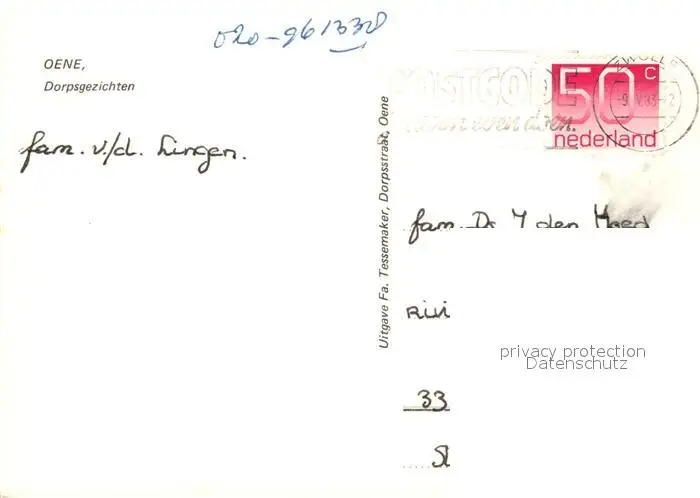 020-961338
OENE,
Dorpsgezichten
fam. v/d. Lingen.
Uitgave Fa. Tessemaker, Dorpsstraat, Oene
POSTCODE
50 c
nederland
ZWOLLE
fam. Dr. Y den
33
privacy protection
Datenschutz